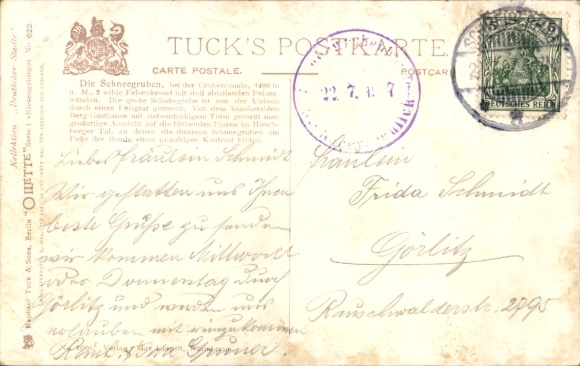 TUCK'S POSTKARTE.
CARTE POSTALE.
POSTCARD
Die Schneegruben, bei der Grubenbaude, 1490 m
ü. M., 2 wilde Felsenkessel mit steil abfallenden Felsen-
wänden. Die große Schneegrube ist von der kleinen
durch einen Felsgrat getrennt. Von dem komfortablen
Berg Gasthause mit siebenstockigem Turm genießt man
großartige Aussicht auf die blühenden Fluren im Hirsch-
berger Tal, zu denen die düsteren Schneegruben zu
Füße der Baude einen gewaltigen Kontrast bilden.
Kollektion "Deutscher Städte"
No. 622.
Raphael Tuck & Sons, Berlin "OILETTE" Serie
22.7.
DEUTSCHES REICH
Liebes Fräulein Schmidt
Wir gestatten uns Ihnen
beste Grüße zu senden
wir kommen Mittwoch
oder Donnerstag durch
Görlitz und werden uns
erlauben mit
Verlag Max Leipelt, Warmbrunn
Fräulein
Frida Schmidt
Görlitz
Rauschwalderstr.